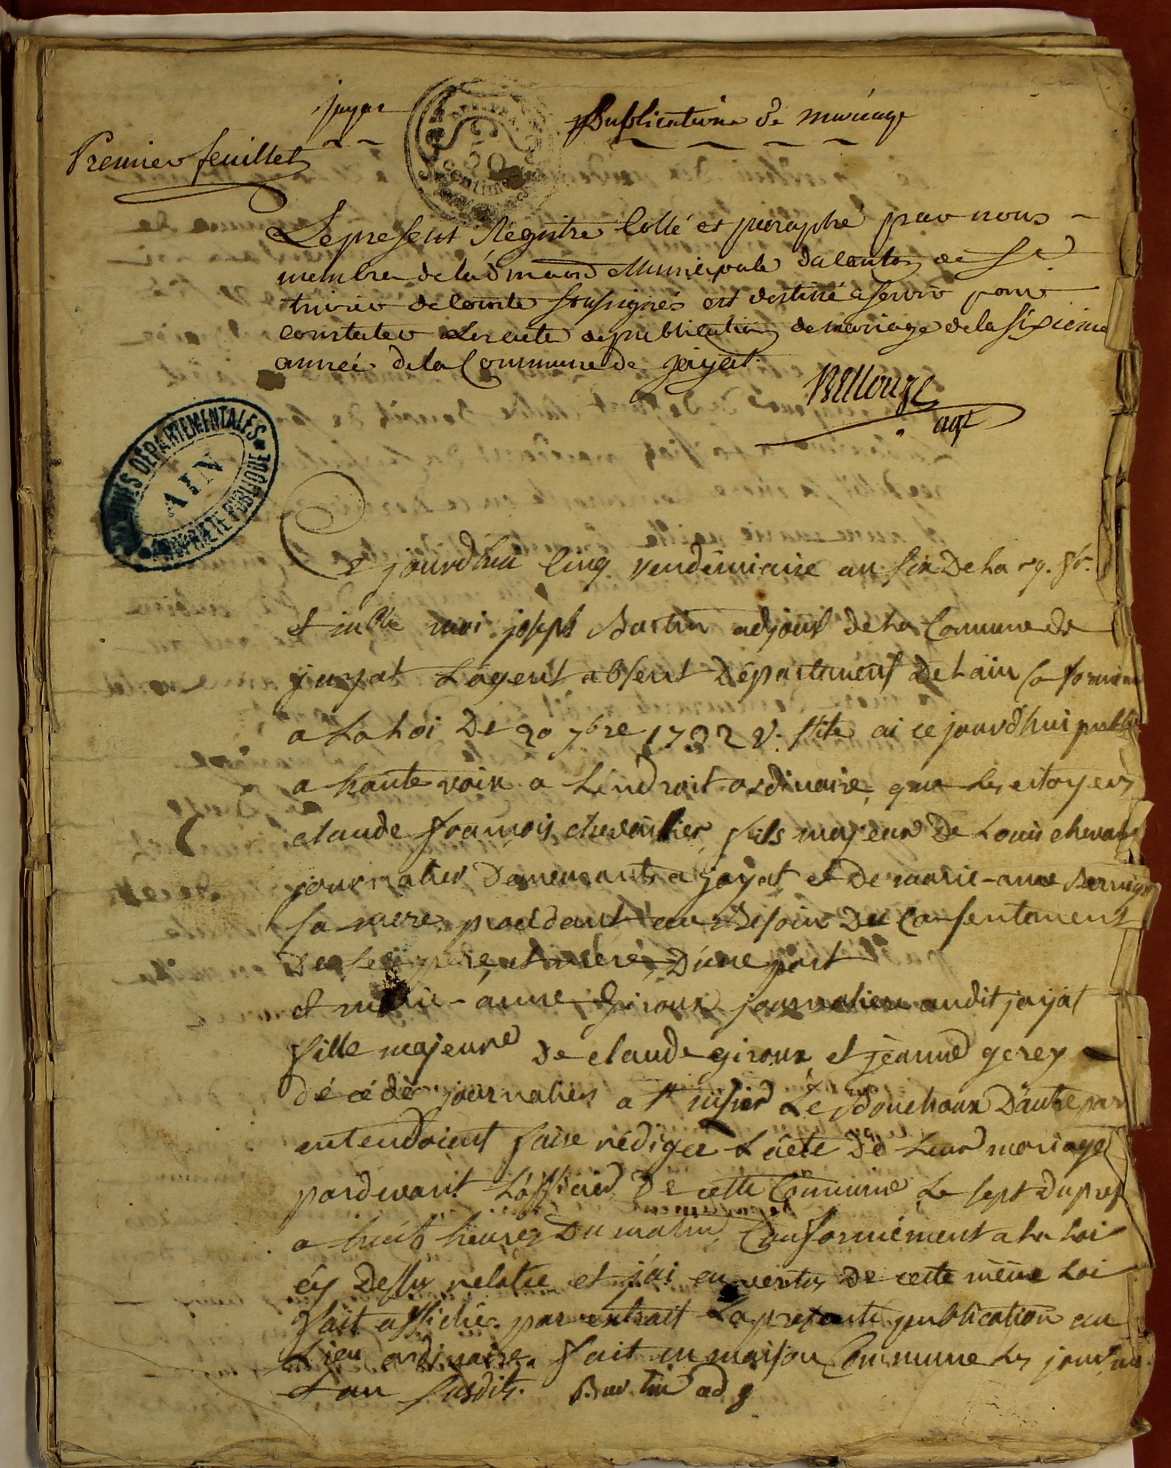 jayat
Publications de mariage
Premier feuillet
50
centimes
Le present Régistre Cotté et paraphé par nous
membre de l'adm. aon Municipale du Canton de St.
trivier de Comte soussignés est destiné a servir pour
constater les acte de publication de mariage de la sixieme
année de la Commune de jayat.
agt
ARCHIVES DÉPARTEMENTALES
AIN
PROPRIÉTÉ PUBLIQUE
Ce jourdhui Cinq vendemiaire an six De La rep. fr.
et indle moi joseph Bartin adjoint de La Commune de
jayat L'agent absent Département De Lain Conformem
a La Loi De 20 7bre 1792 v. stile ai ce jourd'hui publié
a haute voix a Lendroit ordinaire que Les citoyens
claude francois chevalier fils majeur De Louis cheval
journalier Demeurants a jayat et De marie-anne
sa mere, procedant au Besoin Du Consentement
De Ses père et mere, D'une part
et marie-anne giroux journaliere audit jayat
fille majeure De claude giroux et jeanne gerey
décédés journaliers a St Le Bouchoux D'autre par
entendoient faire rédiger L'acte De Leur mariage
pardevant L'officier De cette Commune Le sept Du pres
a huit heures Du matin Conformément a La Loi
cy Dessus relatée et j'ai en vertu de cette même Loi
fait afficher par extrait La presente publication au
Lieu ordinaire. fait en maison Commune Les jour
et an susdits. Bartin adj